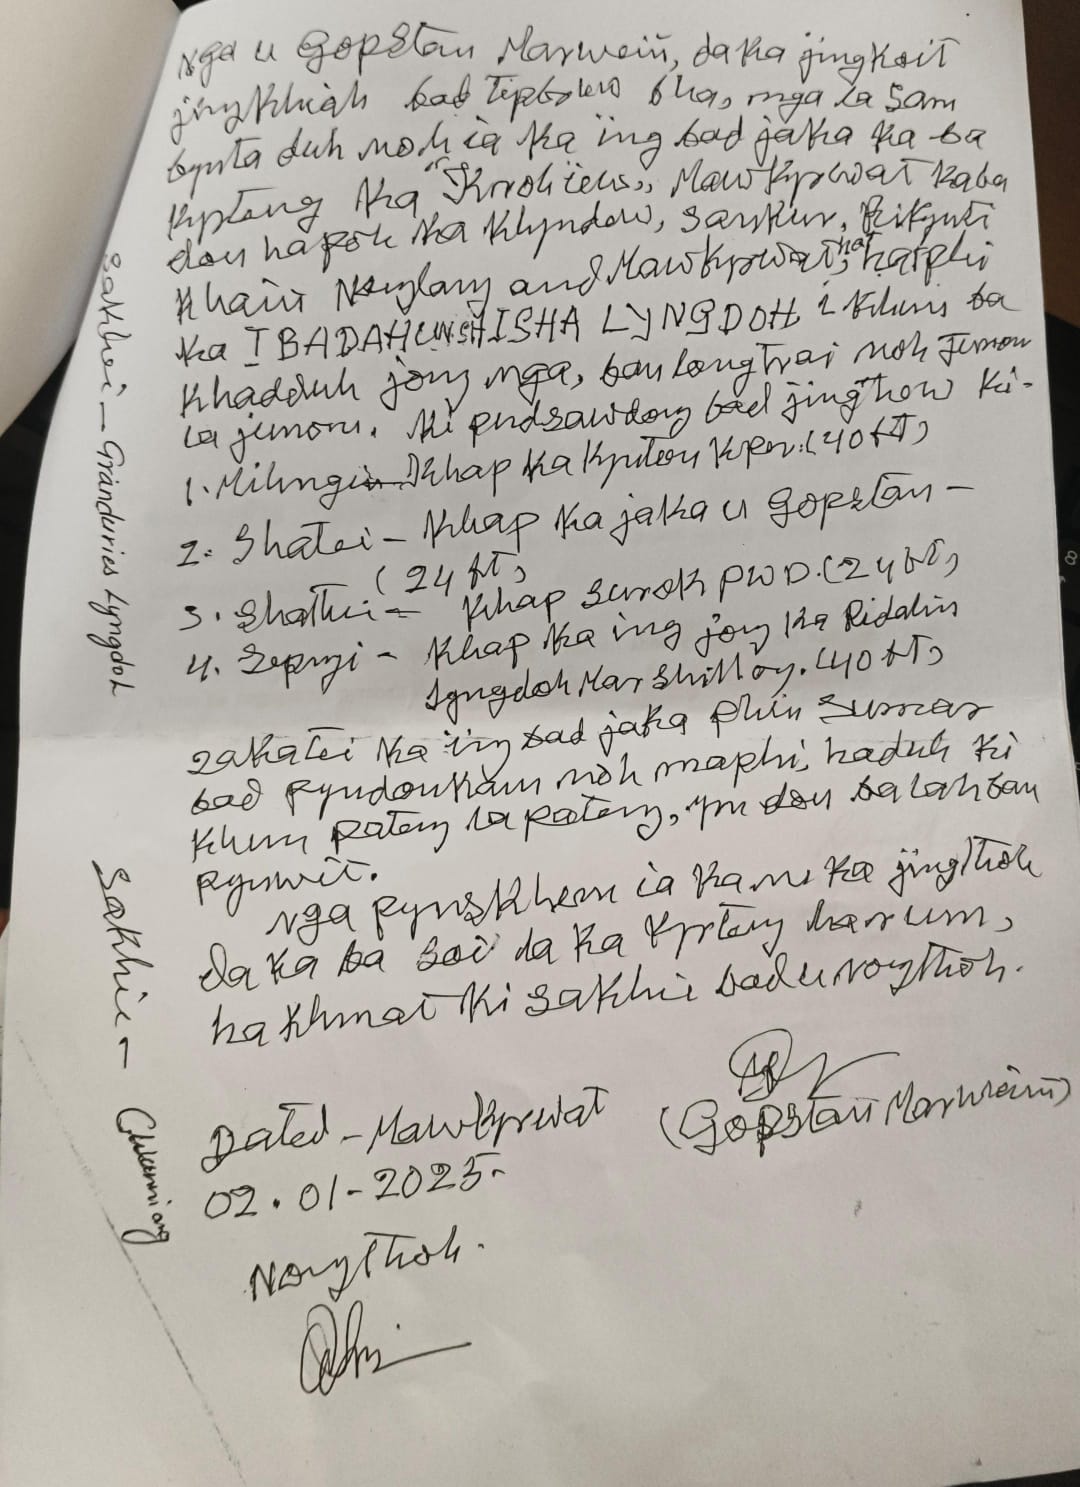 Nga u Gopstan Marwein, da ka jingkoit
jingkhiah bad tipbriew bha, nga la sam
bynta duh noh ia ka ïng bad jaka ka ba
kyrteng ka "Krohïew", Mawkyrwat kaba
don hapoh ka Klyndew, Sankur,
Khain Nonglang and Mawkyrwat, ha phi
ka IBADAHUNSHISHA LYNGDOH i khun ba
khadduh jong nga, ban long trai noh jimon
la jimon. Ki pudsawdong bad jingthow ki-
1. Mihngi - Khap ka (40 ft)
2. Shatei - Khap ka jaka u Gopstan -
(24 ft)
3. Shathie - Khap surok PWD. (24 ft)
4. Sepngi - Khap ka ing jong ka Riddalin
Lyngdoh Marshilloy. (40 ft)
Kakatei ka ïing bad jaka phin sumar
bad pyndonkam noh maphi, haduh ki
khun pateng la pateng, ym don ba lah ban
pynwit.
Nga pynskhem ia kane ka jingthoh
da ka ba soi da ka kyrteng harum,
ha khmat ki sakhi bad u nongthoh.
(Gopstan Marwein)
Dated - Mawkyrwat
02.01-2025.
Nongthoh.
Sakhi - Granduries Lyngdoh
Sakhi -